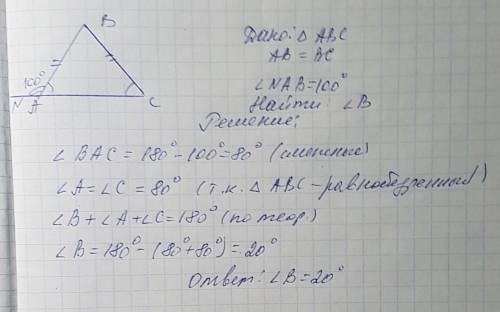 B
100°
N A C
Дано: △ ABC
AB = BC
∠NAB=100°
Найти: ∠B
Решение:
∠BAC = 180° - 100° = 80° (смежные)
∠A = ∠C = 80° (т.к. △ ABC - равнобедренный)
∠B + ∠A + ∠C = 180° (по теор.)
∠B = 180° - (80° + 80°) = 20°
Ответ: ∠B = 20°